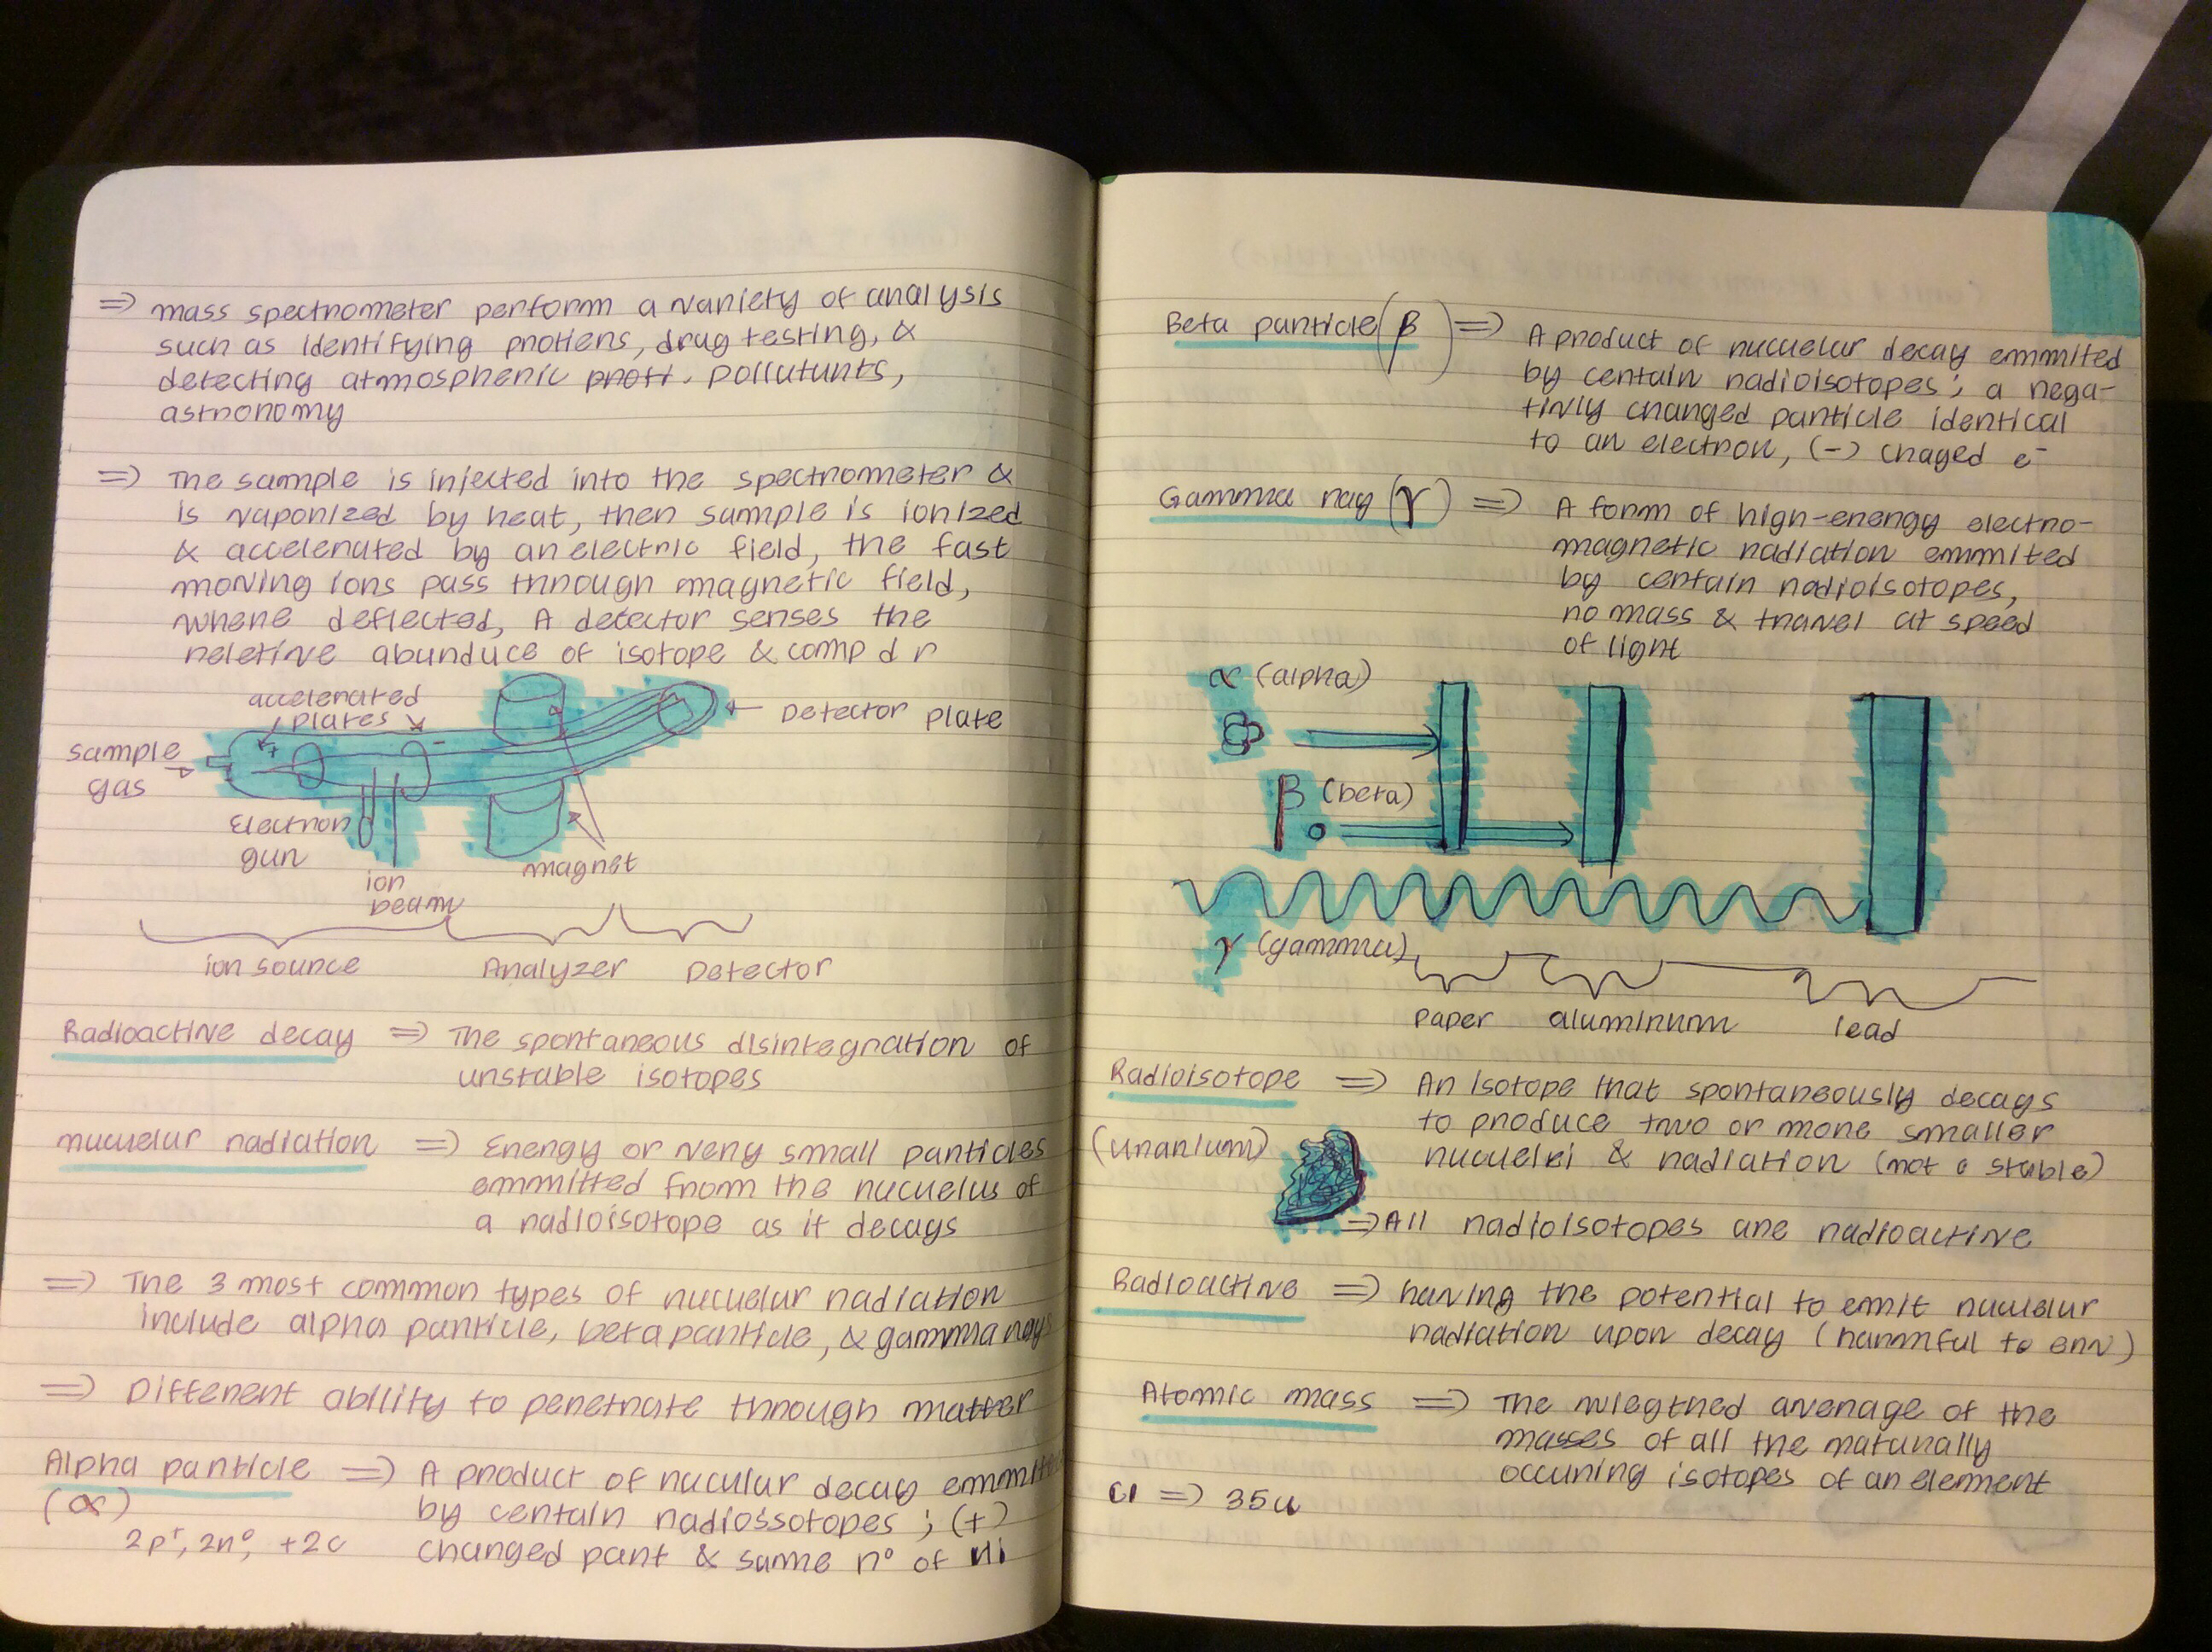 => mass spectrometer perform a variety of analysis
such as identifying protiens, drug testing, &
detecting atmospheric prott. pollutants,
astronomy
=> The sample is injected into the spectrometer &
is vaporized by heat, then sample is ionized
& accelerated by an electric field, the fast
moving ions pass through magnetic field,
where deflected, A detector senses the
reletive abunduce of isotope & comp d r
accelerated
plates
Detector plate
sample
gas
+
-
Electron
gun
ion
beam
magnet
ion source Analyzer Detector
Radioactive decay => The spontaneous disintegration of
unstable isotopes
nucuelur radiation => Energy or very small particles
emmitted from the nucuelus of
a radioisotope as it decays
=> The 3 most common types of nucuelur radiation
include alpha particle, beta particle, & gamma rays
=> Different ability to penetrate through matter
Alpha particle => A product of nucular decay
(α) by certain radiossotopes ; (+)
2p⁺, 2n⁰, +2c charged part & same n° of
Beta particle (β) => A product of nucuelur decay emmited
by certain radioisotopes; a nega-
tivly charged particle identical
to an electron, (-) chaged e⁻
Gamma ray (γ) => A form of high-energy electro-
magnetic radiation emmited
by certain radioisotopes,
no mass & travel at speed
of light
α (alpha)
β (beta)
γ (gamma)
paper aluminum lead
Radioisotope => An isotope that spontaneously decays
to produce two or more smaller
(uranium) nucuelei & radiation (not a stable)
=> All radioisotopes are radioactive
Radioactive => having the potential to emit nucuelur
radiation upon decay (harmful to env)
Atomic mass => The wiegthed average of the
masses of all the naturally
occuring isotopes of an element
Cl => 35u